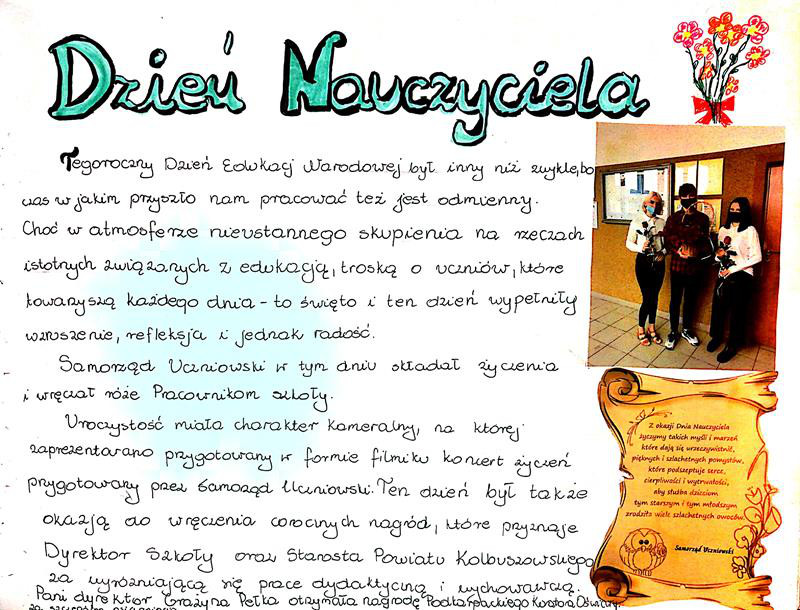 Dzień Nauczyciela
Tegoroczny Dzień Edukacj Narodowej był inny niż zwykle, bo
czas w jakim przyszło nam pracować też jest odmienny.
Choć w atmosferze nieustannego skupienia na rzeczach
istotnych związanych z edukacją, troską o uczniów, które
towaryszą każdego dnia - to święto i ten dzień wypełniły
wzruszenie, refleksja i jednak radość.
Samorząd Uczniowski w tym dniu składał życzenia
i wręczał róże Pracownikom szkoły.
Uroczystość miała charakter kameralny, na której
zaprezentowano przygotowany w formie filmiku koncert życzeń
przygotowany przez Samorząd Uczniowski. Ten dzień był także
okazją do wręczenia corocznych nagród, które przyznaje
Dyrektor Szkoły oraz Starosta Powiatu Kolbuszowskiego
za wyróżniającą się prace dydaktyczną i wychowawczą.
Pani dyrektor Grażyna Pełka otrzymała nagrodę Podkarpackiego Kuratora Oświaty
Z okazji Dnia Nauczyciela
życzymy takich myśli i marzeń
które dają się urzeczywistnić,
pięknych i szlachetnych pomysłów,
które podszeptuje serce,
cierpliwości i wytrwałości,
aby służba dzieciom
tym starszym i tym młodszym
zrodziła wiele szlachetnych owoców.
Samorząd Uczniowski